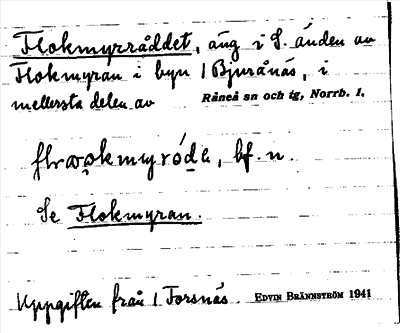 Flokmyrråddet, äng i S. änden av
Flokmyran i byn 1 Bjurånäs, i
mellersta delen av Råneå sn och tg, Norrb. l.
bf. n.
Se Flokmyran.
Uppgiften från 1 Forsnäs. EDVIN BRÄNNSTRÖM 1941